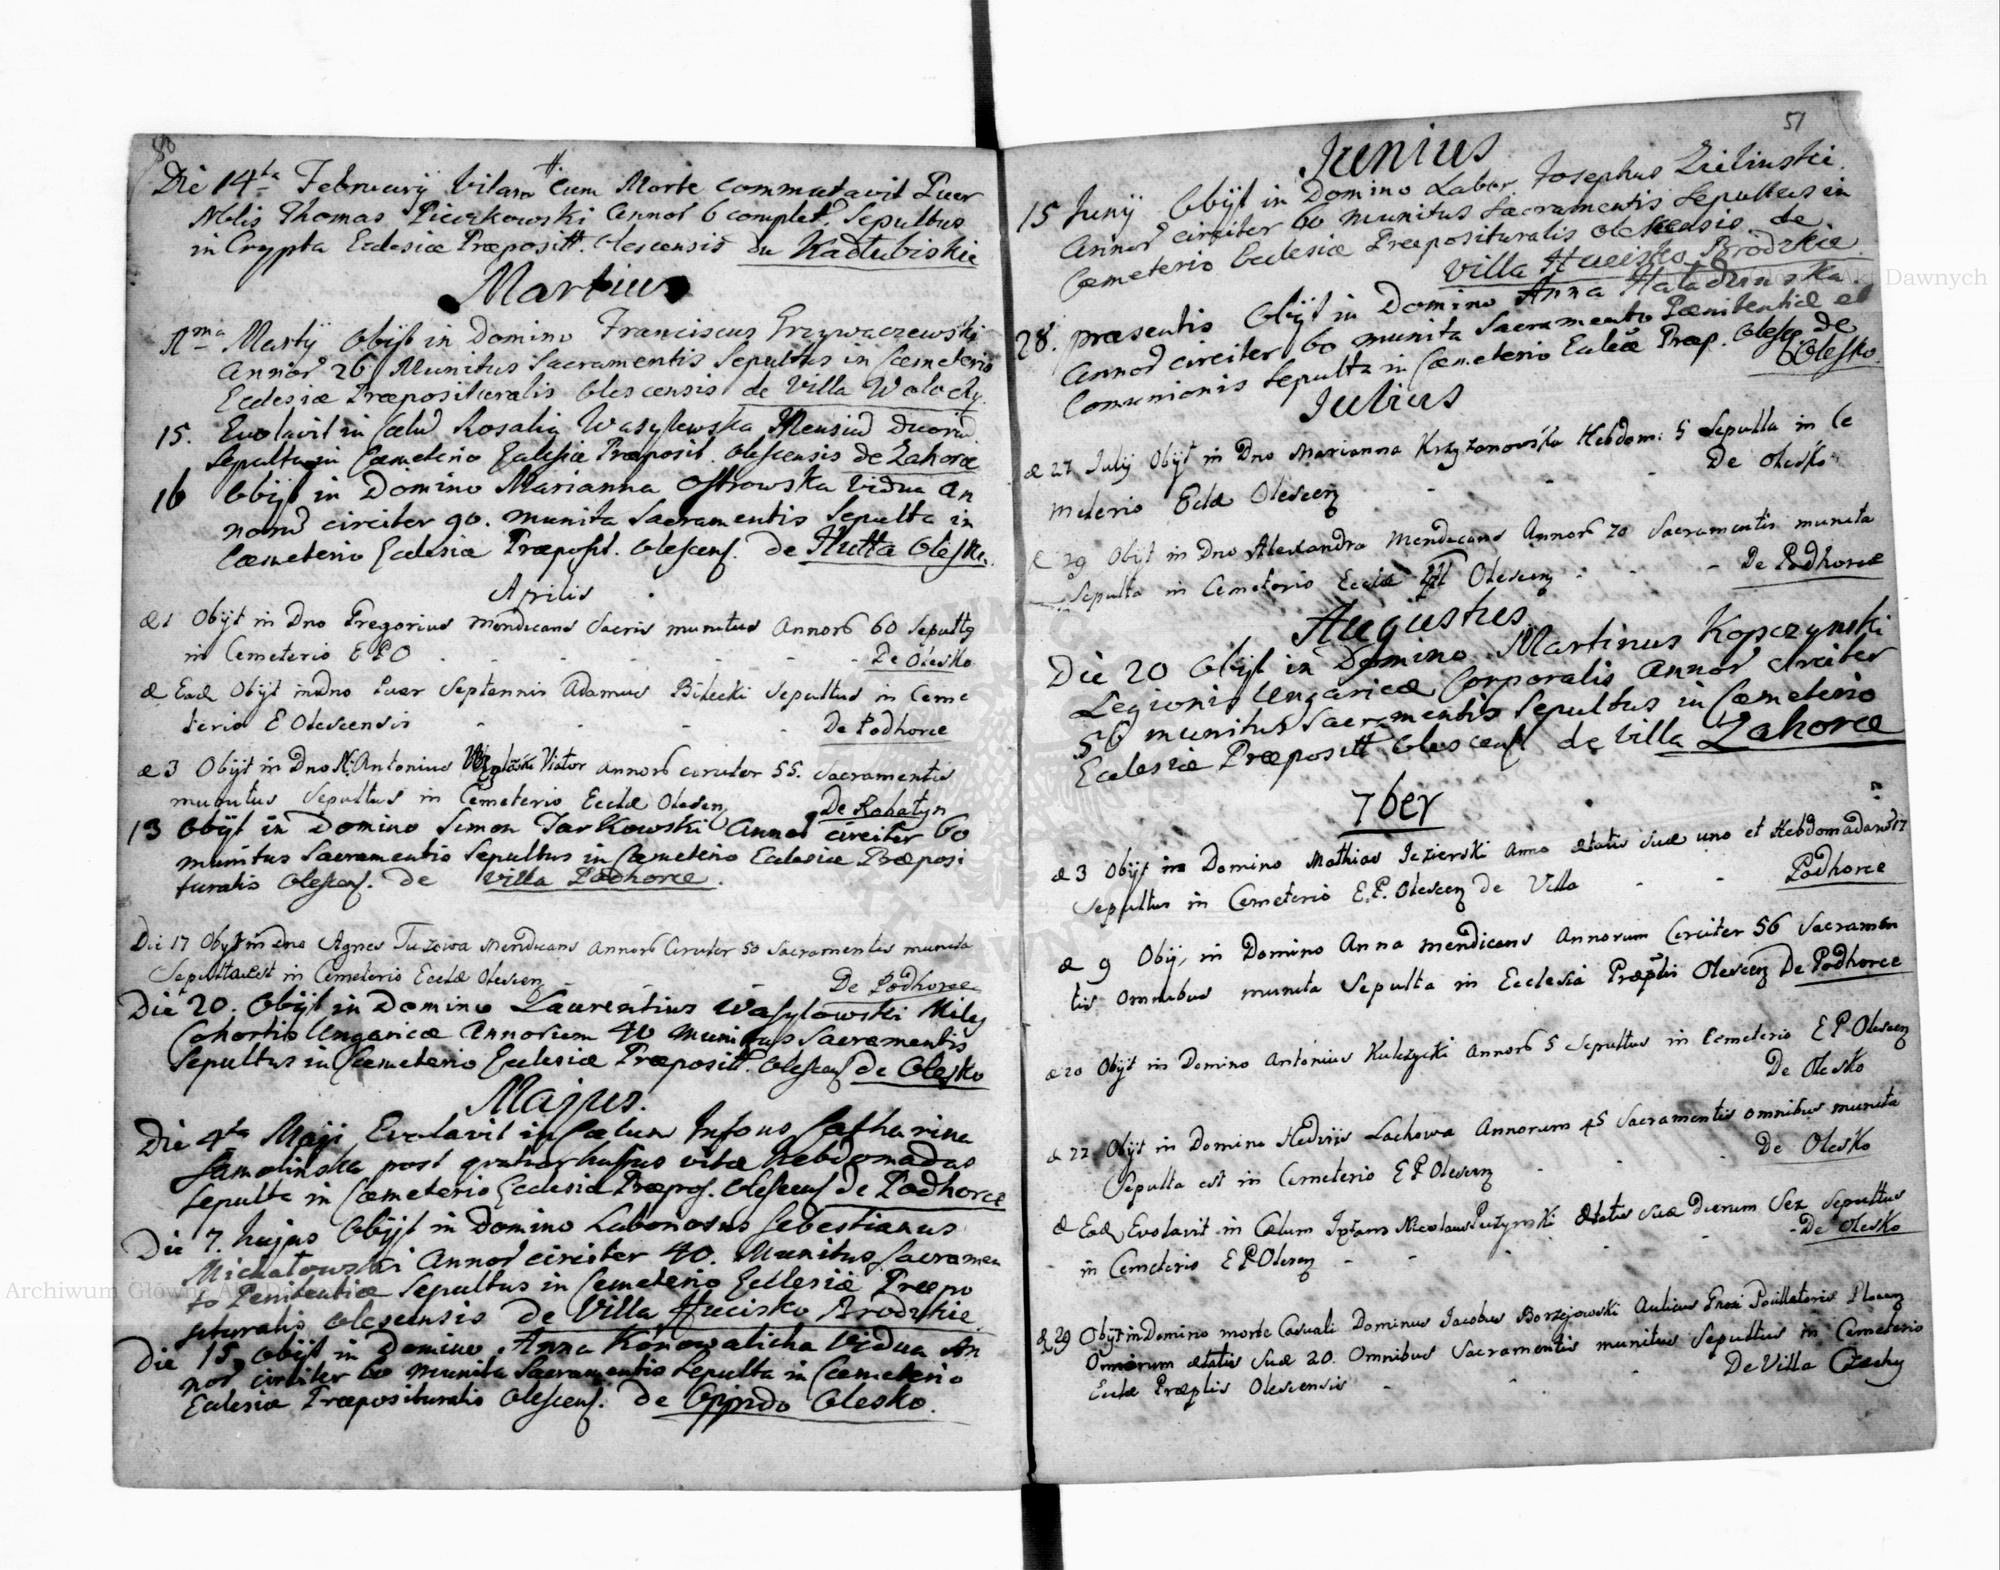 50
Die 14ta Februarij Vitam cum Morte commutavit Puer
Nblis Thomas Piorkowski Annor 6 complet. Sepultus
in Crypta Ecclesiæ Præposit. Olescensis de Kadlubiskie
Martius
Martij Obijt in Domino Franciscus Grzywaczewski
Annor 26 Munitus Sacramentis Sepultus in Cæmeterio
Ecclesiæ Præposituralis Olescensis de Villa Wolochy.
15. Evolavit in Cælu Rosalia Wasylewska Mensiu duoru
Sepulta in Cæmeterio Ecclesiæ Præposit. Olescensis de Zahorce
16 Obijt in Domino Marianna Ostrowska Vidua An
noru circiter 90. munita Sacramentis Sepulta in
Cæmeterio Ecclesiæ Præposit. Olescens. de Hutta Oleska.
Aprilis
d 1 Obijt in Dno Gregorius Mendicans Sacris munitus Annor 60 Sepultq
in Cemeterio E P O - - - - De Olesko
d Ead Obijt in dno Puer Septennis Adamus Bilecki Sepultus in Ceme
terio E Olescensis - - - - De Podhorce
d 3 Obijt in Dno N. Antonius Viator Annor circiter 55. Sacramentis
munitus Sepultus in Cemeterio Ecclæ Olescen De Rohatyn
13 Obijt in Domino Simon Tarkowski Annor circiter 60
munitus Sacramentis Sepultus in Cæmeterio Ecclesiæ Præposi
turalis Olescens. de Villa Podhorce.
Die 17 Obijt in dno Agnes Tuzowa Mendicans Annor Circiter 50 Sacramentis munita
Sepulta est in Cemeterio Ecclæ Olescen - - De Podhorce
Die 20. Obijt in Domino Laurentius Wasylowski Miles
Cohortis Ungaricæ Annorum 40 Munitus Sacramentis
Sepultus in Cæmeterio Ecclesiæ Præposit. Olescens de Olesko
Majus.
Die 4ta Maji Evolavit in Cælum Infans Catharina
Samolinska post quatuor hujus vitæ hebdomadas
Sepulta in Cæmeterio Ecclesiæ Præpos. Olescens de Podhorce
Die 7. hujus Obijt in Domino Laboriosus Sebestianus
Michałowski Annor circiter 40. Munitus Sacramen
to Penitentiæ Sepultus in Cemeterio Ecclesiæ Præpo
situralis Olescensis de Villa Hucisko Brodzkie
Die 15. Obijt in Domino Anna Konowalicha Vidua An
nor circiter 60 munita Sacramentis Sepulta in Cæmeterio
Ecclesiæ Præposituralis Olescens. de Oppido Olesko.
51
Junius
15 Junij Obijt in Domino Labor. Josephus Zielinski
Annor circiter 60 munitus Sacramentis Sepultus in
Cæmeterio Ecclesiæ Præposituralis Olescensis de
Villa Hucisko Brodzkie
28. præsentis Obijt in Domino Anna Haładzinska
Annor circiter 60 munita Sacramento Pænitentiæ et
Comunionis Sepulta in Cæmeterio Ecclæ Præp. Olesc. de
Olesko.
Julius
d 27 Julij Obijt in Dno Marianna Krzyzanowska Hebdom: 5 Sepulta in Ce
meterio Eclæ Olescen - - - De Olesko
d 29 Obijt in Dno Alexandra Mendicans Annor 70 Sacramentis munita
Sepulta in Cemeterio Ecclæ Olescen - - - De Podhorce
Augustus
Die 20 Obijt in Domino Martinus Kopczynski
Legionis Ungaricæ Corporalis Annor circiter
50 munitus Sacramentis Sepultus in Cæmeterio
Ecclesiæ Præposit Olescens de Villa Zahorce
7ber
d 3 Obijt in Domino Mathias Jezierski Anno ætatis suæ uno et Hebdomadaru 17
Sepultus in Cemeterio E.P. Olescen de Villa - - Podhorce
d 9 Obij, in Domino Anna mendicans Annorum Circiter 56 Sacramen
tis Omnibus munita Sepulta in Ecclesia Præplis Olescen De Podhorce
d 20 Obijt in Domino Antonius Kulczycki Annor 5 Sepultus in Cemeterio E P Olescen
De Olesko
d 22 Obijt in Domino Hedvijis Lachowa Annorum 45 Sacramentis omnibus munita
Sepulta est in Cemeterio E P Olescen - - - De Olesko
d Ead Evolavit in Cælum Nicolaus Puzynski Ætatis suæ Dierum Sex Sepultus
in Cemeterio E P Olescen - - - De Olesko
d 29 Obijt in Domino morte Casuali Dominus Jacobus Borzejowski Aulicus
ætatis suæ 20. Omnibus Sacramentis munitus Sepultus in Cemeterio
Ecclæ Præplis Olescensis - - - De Villa Czechy
Archiwum Główne Akt Dawnych
Archiwum Główne Akt Dawnych